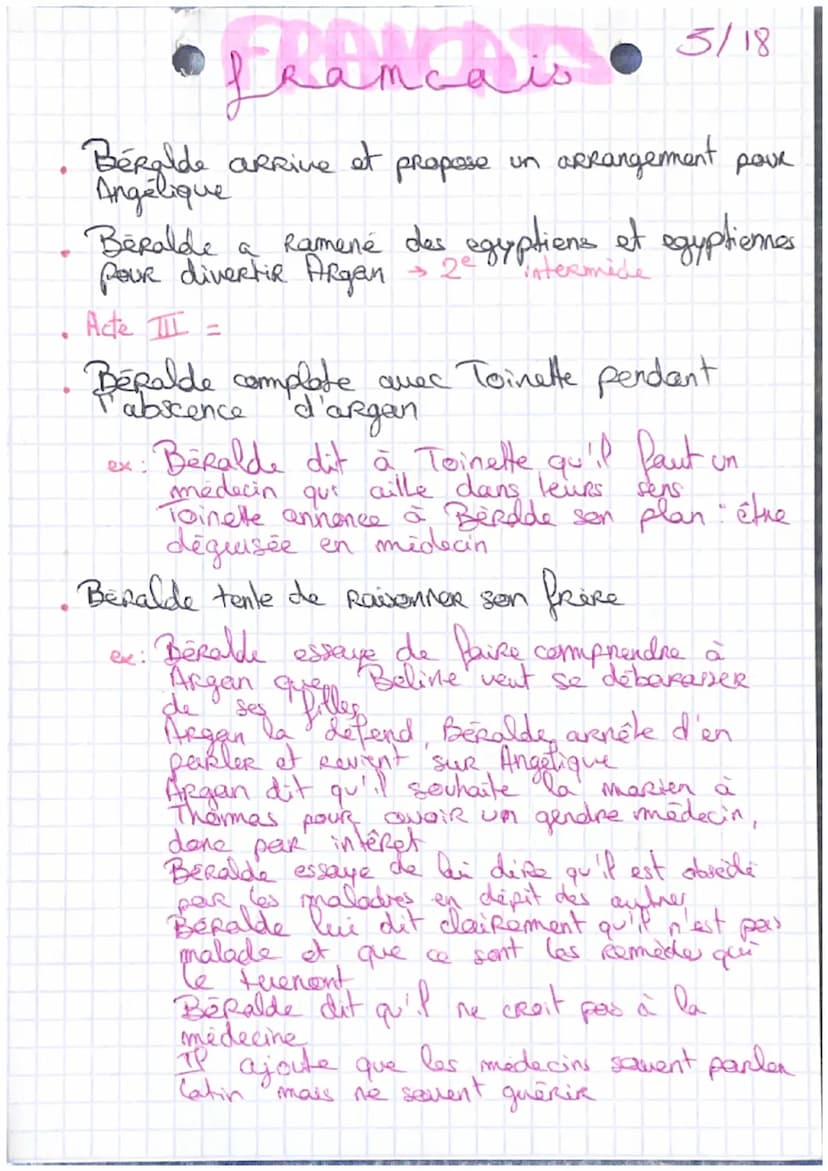 FRANCAIS
5/18
francais
. Béralde arrive et propose un arrangement pour
Angélique
. Béralde a Ramené des egyptiens et egyptiennes
pour divertir Argan → 2e intermède
. Acte III =
. Béralde complote avec Toinette pendant
l'abscence d'argan
ex: Béralde dit à Toinette qu'il faut un
médecin qui aille dans leurs sens
Toinette annonce à Béralde son plan : être
déguisée en médecin
. Béralde tente de raisonner son frère
ex: Béralde essaye de faire comprendre à
Argan que Beline veut se débarasser
de ses filles
Argan la défend, Béralde arrête d'en
parler et revient sur Angélique
Argan dit qu'il souhaite la marier à
Thomas pour avoir un gendre médecin,
donc par intêret
Béralde essaye de lui dire qu'il est obsédé
par les maladies en dépit des autres
Béralde lui dit clairement qu'il n'est pas
malade et que ce sont les remèdes qui
le tueront
Béralde dit qu'il ne croit pas à la
médecine
Il ajoute que les médecins savent parler
latin mais ne savent guérir